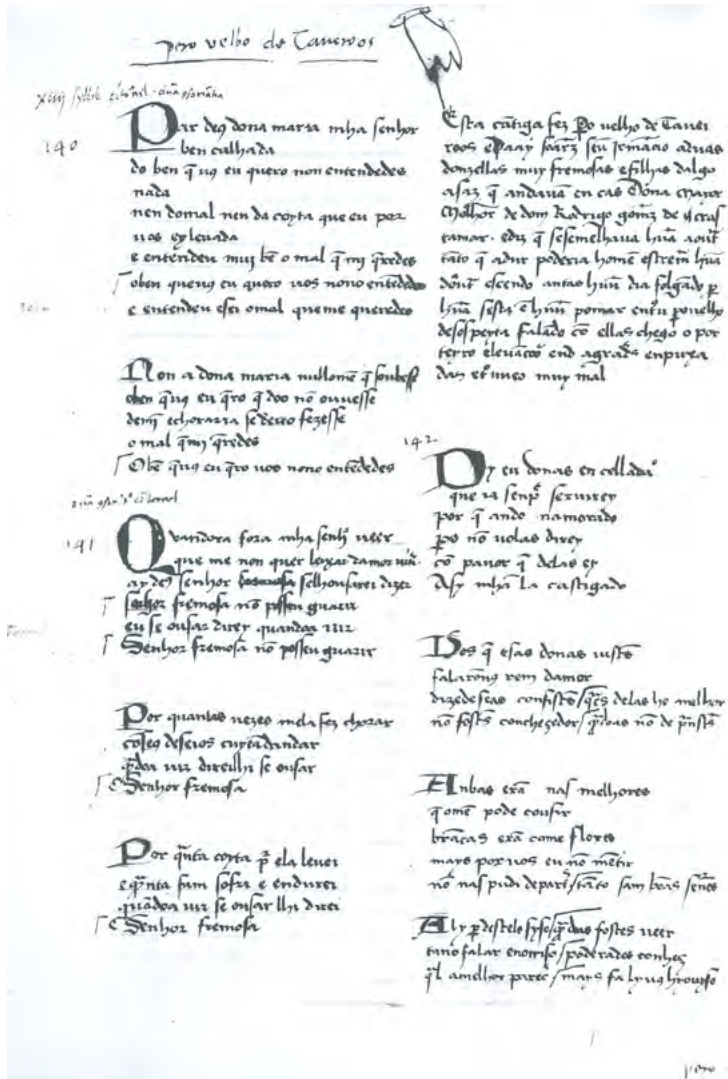 pero velho de Taveiroos
140
Par deꝯ dona maria mha senhor
ben talhada
do ben q̃ uꝯ eu quero non entendedes
nada
nen do mal nen da coyta que eu por
uos ey levada
e entendeu mui bẽ o mal q̃ mi q̃redes
oben queuꝯ eu quero uos nono entẽdedes
e entendeu esei omal queme queredes
Non a dona maria nullomẽ q̃ soubesse
oben q̃ uꝯ eu q̃ro q̃ doo nõ ouuesse
demĩ echoraria se dereito fezesse
o mal q̃ mi q̃redes
Obẽ q̃uꝯ eu q̃ro uos nono entẽdedes
141
Quandora fora mha senhr̃ ueer
que me non quer leixar damor
ay deꝯ senhor selhousarei dizer
senhor fremosa nõ possen guarir
eu se ousar direy quandoa uir
Senhor fremosa nõ possen guarir
Por quantas uezes mela fez chorar
cõseꝯ deseios cuytãdandar
q̃doa uir direilhi se ousar
Senhor fremosa
Por q̃nta coyta p̃ ela leuei
e q̃nta fam sofri e endurei
quãdoa uir se ousar lhi direi
Senhor fremosa
Esta cãtiga fez Po velho de Tauei
roos e Paay soarz seu irmaão a duas
donzellas muy fremosas e filhas dalgo
asaz q̃ andauã en cas dona mayor
molher de dom Rodrigo gomz de tras
tamar. e diz q̃ se semelhaua hũa a outra
tãto q̃ adur poderia homẽ estremar hũa
doutra e seendo anbas hũu dia folgãdo p
hũa sesta ẽ hũu pomar entrou po velho
de sospeyta falãdo cõ ellas chegou o por
teyro e leuantou end a grandes enpuxa
das e muy mal
142
Vy eu donas en cellado
que ia senpr̃ seruirey
por q̃ ando namorado
po nõ uolas direy
cõ pauor q̃ delas ey
Asy mhã la castigado
Vos q̃ esas donas uistes
falarõuꝯ rem damor
dizede seas confistes / q̃l delas he melhor
nõ fostes conhecedor / q̃doas nõ departistes
Anbas erã nas melhores
q̃ omẽ pode cousir
brãcas erã come flores
mays por uos eu nõ mẽtir
nõ nas pudi departir / tãto sam bõas senhores
Aly p̃destelo syso / q̃doas fostes ueer
falar e no riso / poderades conhoc
q̃l a melhor parec / mays faly uꝯ hy o uiso
pero